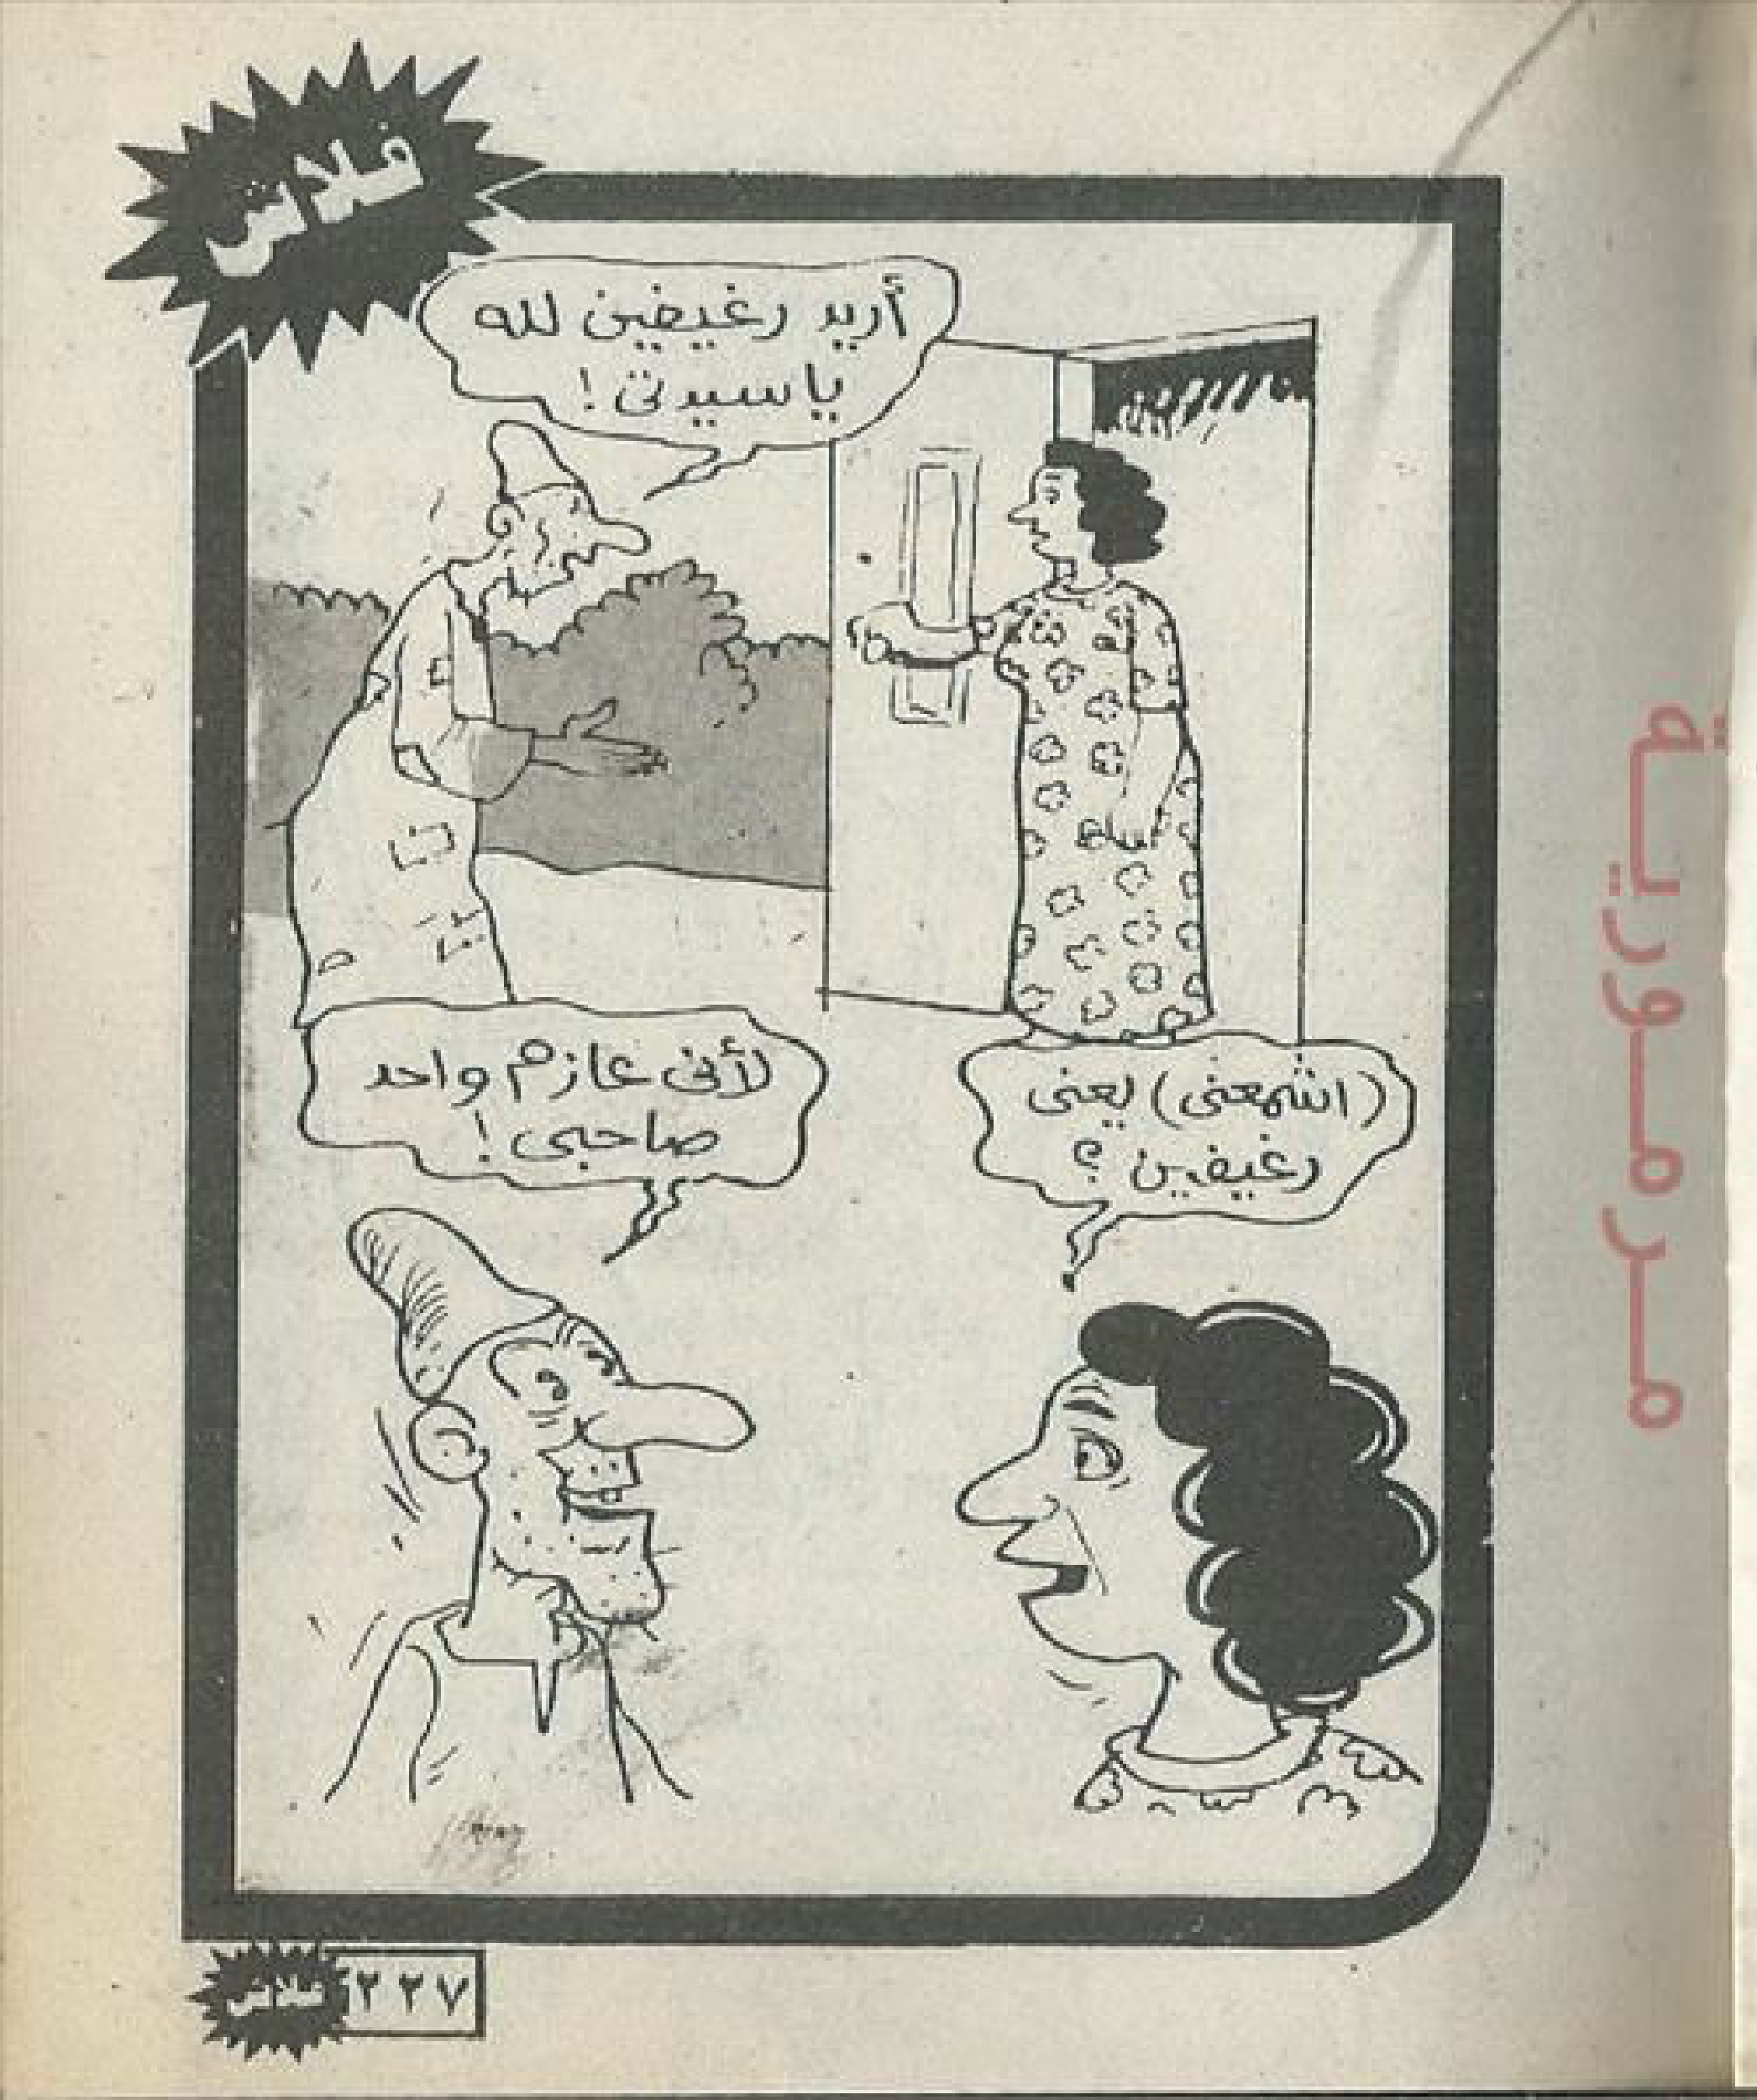 فلاش
أريد رغيفين لله
ياسيدتى !
(اشمعنى) يعنى
رغيفين ؟
لأنى عازم واحد
صاحبى !
فلاش
٢٢٧
مرمورية